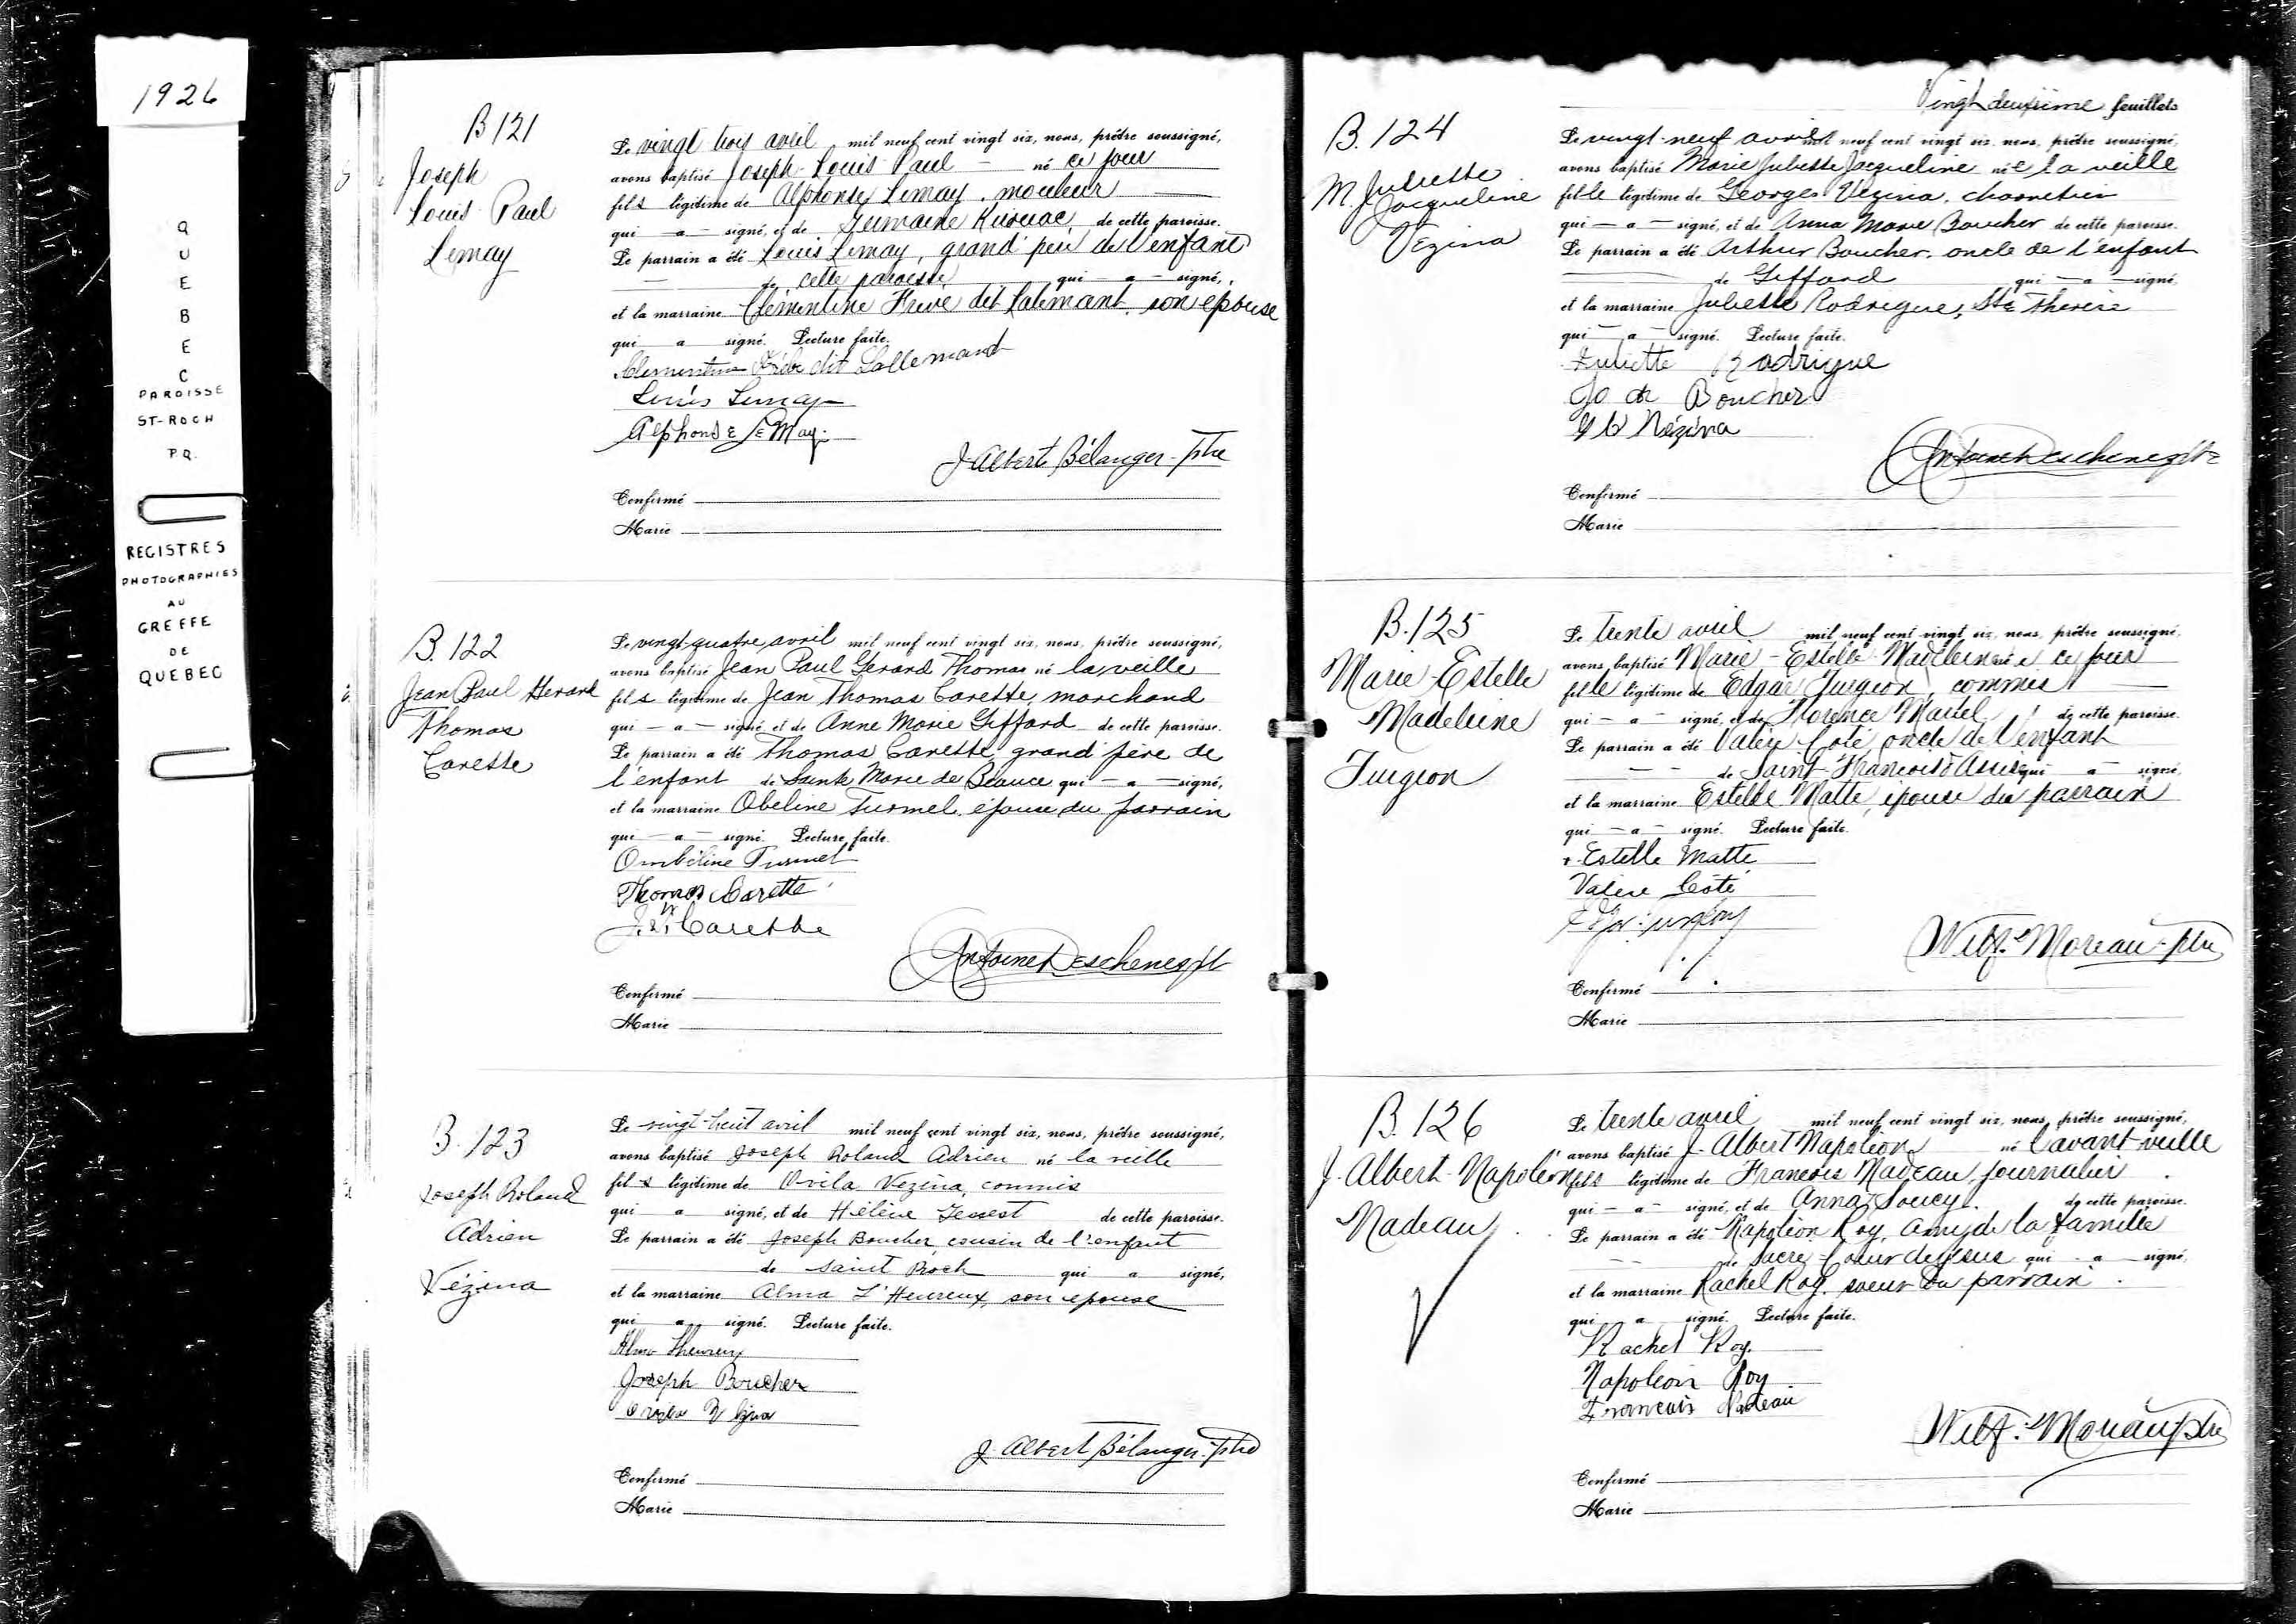 1926
QUEBEC
PAROISSE
ST-ROCH
P.Q.
REGISTRES
PHOTOGRAPHIES
AU
GREFFE
DE
QUEBEC
B 121
Joseph
Louis Paul
Lemay
Le vingt trois avril mil neuf cent vingt six, nous, prêtre soussigné,
avons baptisé Joseph-Louis Paul né ce jour
fils légitime de Alphonse Lemay, mouleur
qui a signé, et de Germaine de cette paroisse.
Le parrain a été Louis Lemay, grand père de l'enfant
de cette paroisse qui a signé,
et la marraine Clémentine dit son épouse
qui a signé. Lecture faite.
Clementine dit Lallemand
Louis Lemay
Alphonse LeMay
J-Albert Bélanger-ptre
Confirmé
Marié
B. 122
Jean Paul Gerard
Thomas
Carette
Le vingt-quatre avril mil neuf cent vingt six, nous, prêtre soussigné,
avons baptisé Jean Paul Gerard Thomas né la veille
fils légitime de Jean Thomas Carette, marchand
qui a signé et de Anne Marie Giffard de cette paroisse.
Le parrain a été Thomas Carette grand père de
l'enfant de Sainte Marie de Beauce qui a signé,
et la marraine Obeline Turmel, épouse du parrain
qui a signé. Lecture faite.
Ombéline Turmel
Thomas Carette
Carette
Antoine Deschenes ptre
Confirmé
Marié
B. 123
Joseph Roland
Adrien
Vézina
Le vingt-huit avril mil neuf cent vingt six, nous, prêtre soussigné,
avons baptisé Joseph Roland Adrien né la veille
fils légitime de Ovila Vezina, commis
qui a signé, et de Hélène de cette paroisse.
Le parrain a été Joseph Boucher, cousin de l'enfant
de Saint Roch qui a signé,
et la marraine Alma L'Heureux, son epouse
qui a signé. Lecture faite.
Alma Lheureux
Joseph Boucher
Ovila Vezina
J. Albert Bélanger-ptre
Confirmé
Marié
Vingt deuxième feuillets
B. 124
M. Juliette
Jacqueline
Vezina
Le vingt-neuf avril mil neuf cent vingt six, nous, prêtre soussigné,
avons baptisé Marie Juliette Jacqueline née la veille
fille légitime de Georges Vezina, charretier
qui a signé, et de Anna Marie Boucher de cette paroisse.
Le parrain a été Arthur Boucher, oncle de l'enfant
de Giffard qui a signé,
et la marraine Juliette Rodrigue, Ste Thérèse
qui a signé. Lecture faite.
Juliette Rodrigue
Boucher
Vézina
Antoine Deschenes ptre
Confirmé
Marié
B. 125
Marie-Estelle
Madeleine
Turgeon
Le trente avril mil neuf cent vingt six, nous, prêtre soussigné,
avons baptisé Marie-Estelle-Madeleine née ce jour
fille légitime de Edgar Turgeon, commis
qui a signé, et de Florence Martel de cette paroisse.
Le parrain a été Valère Coté, oncle de l'enfant
de Saint François d'Assise qui a signé,
et la marraine Estelle Matte, épouse du parrain
qui a signé. Lecture faite.
Estelle Matte
Valère Côté
Edgar Turgeon
Wilf. Moreau-ptre
Confirmé
Marié
B. 126
J. Albert-Napoléon
Nadeau
Le trente avril mil neuf cent vingt six, nous, prêtre soussigné,
avons baptisé J-Albert Napoléon né l'avant-veille
fils légitime de François Nadeau, journalier
qui a signé, et de Anna Soucy. de cette paroisse.
Le parrain a été Napoléon Roy, Ami de la famille
de Sacré-Coeur de Jesus qui a signé,
et la marraine Rachel Roy, soeur du parrain.
qui a signé. Lecture faite.
Rachel Roy.
Napoleon Roy
Francois Nadeau
Wilf. Moreau ptre
Confirmé
Marié